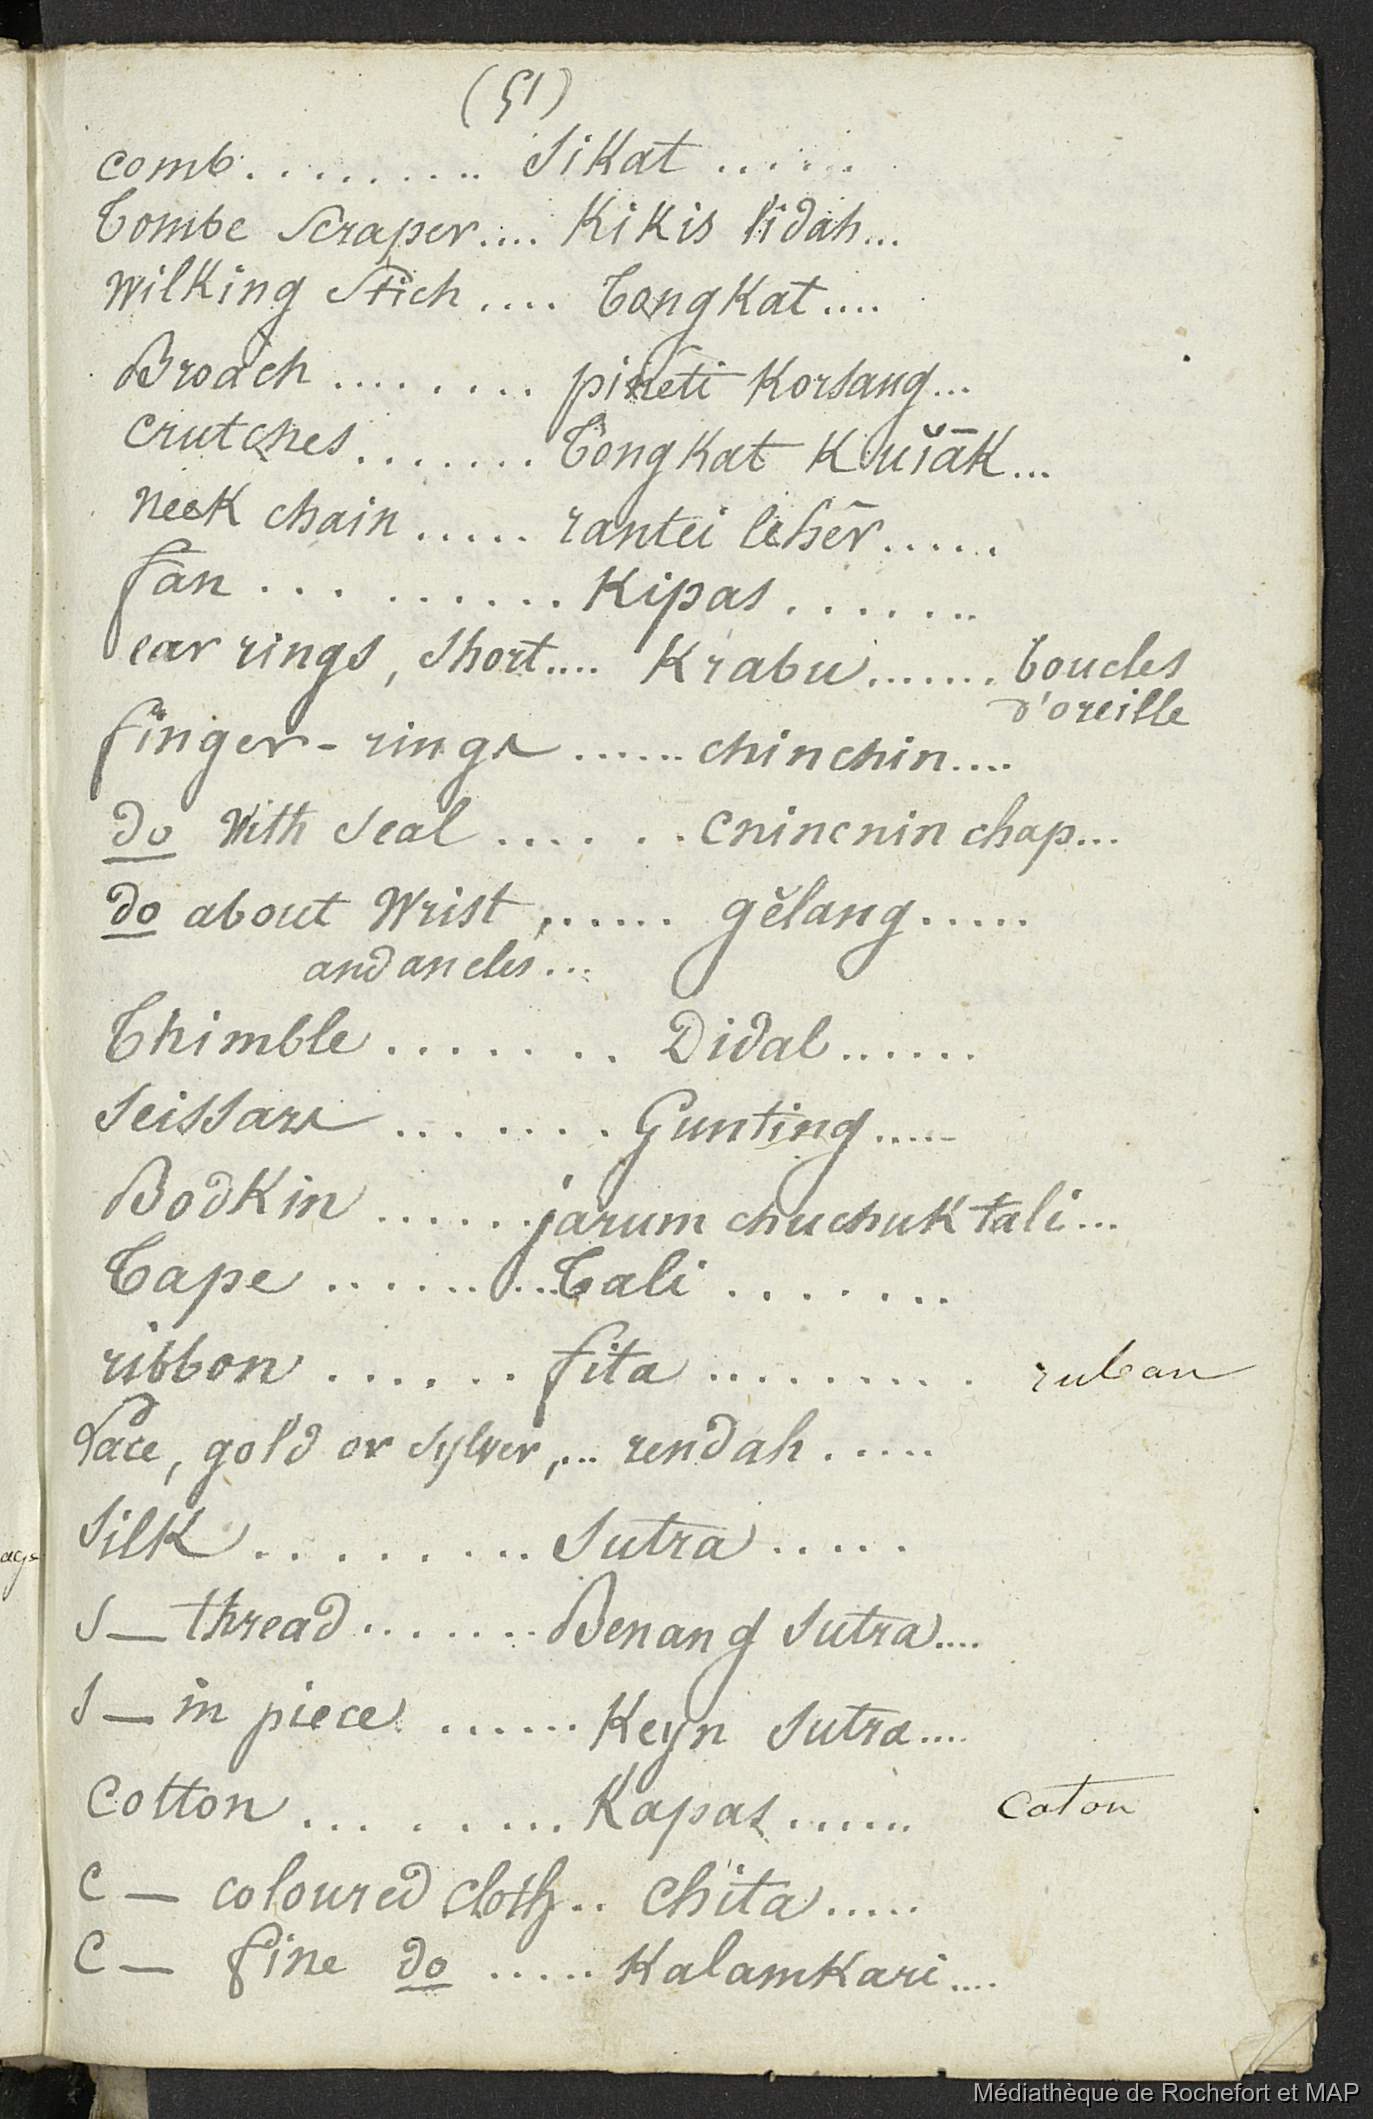 (51)
comb......... Sikat......
Tombe Scraper.... Kikis lidah...
Wilking Stich.... Tongkat....
Broach........ pineti Korsang...
crutches....... Tongkat Kŭiāk...
neek chain..... rantei lehēr.....
fan......... Kipas.......
ear rings, short.... Krabu....... boucles
d'oreille
finger-rings...... chinchin....
do With seal...... chinchin chap...
do about Wrist,...... gĕlang.....
and ancles...
Thimble....... Didal......
Scissars....... Gunting.....
Bodkin...... jarum chuchuk tali...
Tape......... Tali.......
ribbon...... fita......... ruban
Lace, gold or sylver,... rendah.....
Silk......... Sutra.....
S— thread....... Benang Sutra....
S— in piece...... Keyn Sutra....
Cotton........ Kapas...... coton
C— coloured cloth.. Chita.....
C— fine do..... Kalamkari....
Médiathèque de Rochefort et MAP